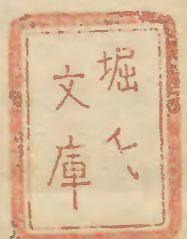 堀氏
文庫